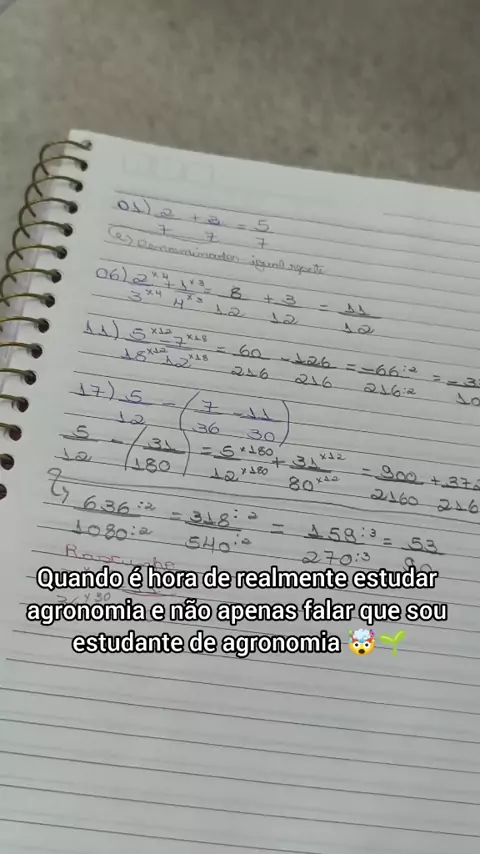 01) 2/7 + 3/7 = 5/7
(e) Denominador igual repete
06) 2×4/3×4 + 1×3/4×3 = 8/12 + 3/12 = 11/12
11) 5×12/18×12 - 7×18/12×18 = 60/216 - 126/216 = -66:2/216:2 = -3
17) 5/12 - (7/36 - 11/30)
5/12 - (31/180) = 5×180/12×180 + 31×12/80×12 = 900/2160 + 372/216
636:2/1080:2 = 318:2/540:2 = 159:3/270:3 = 53
Quando é hora de realmente estudar
agronomia e não apenas falar que sou
estudante de agronomia 🤯🌱